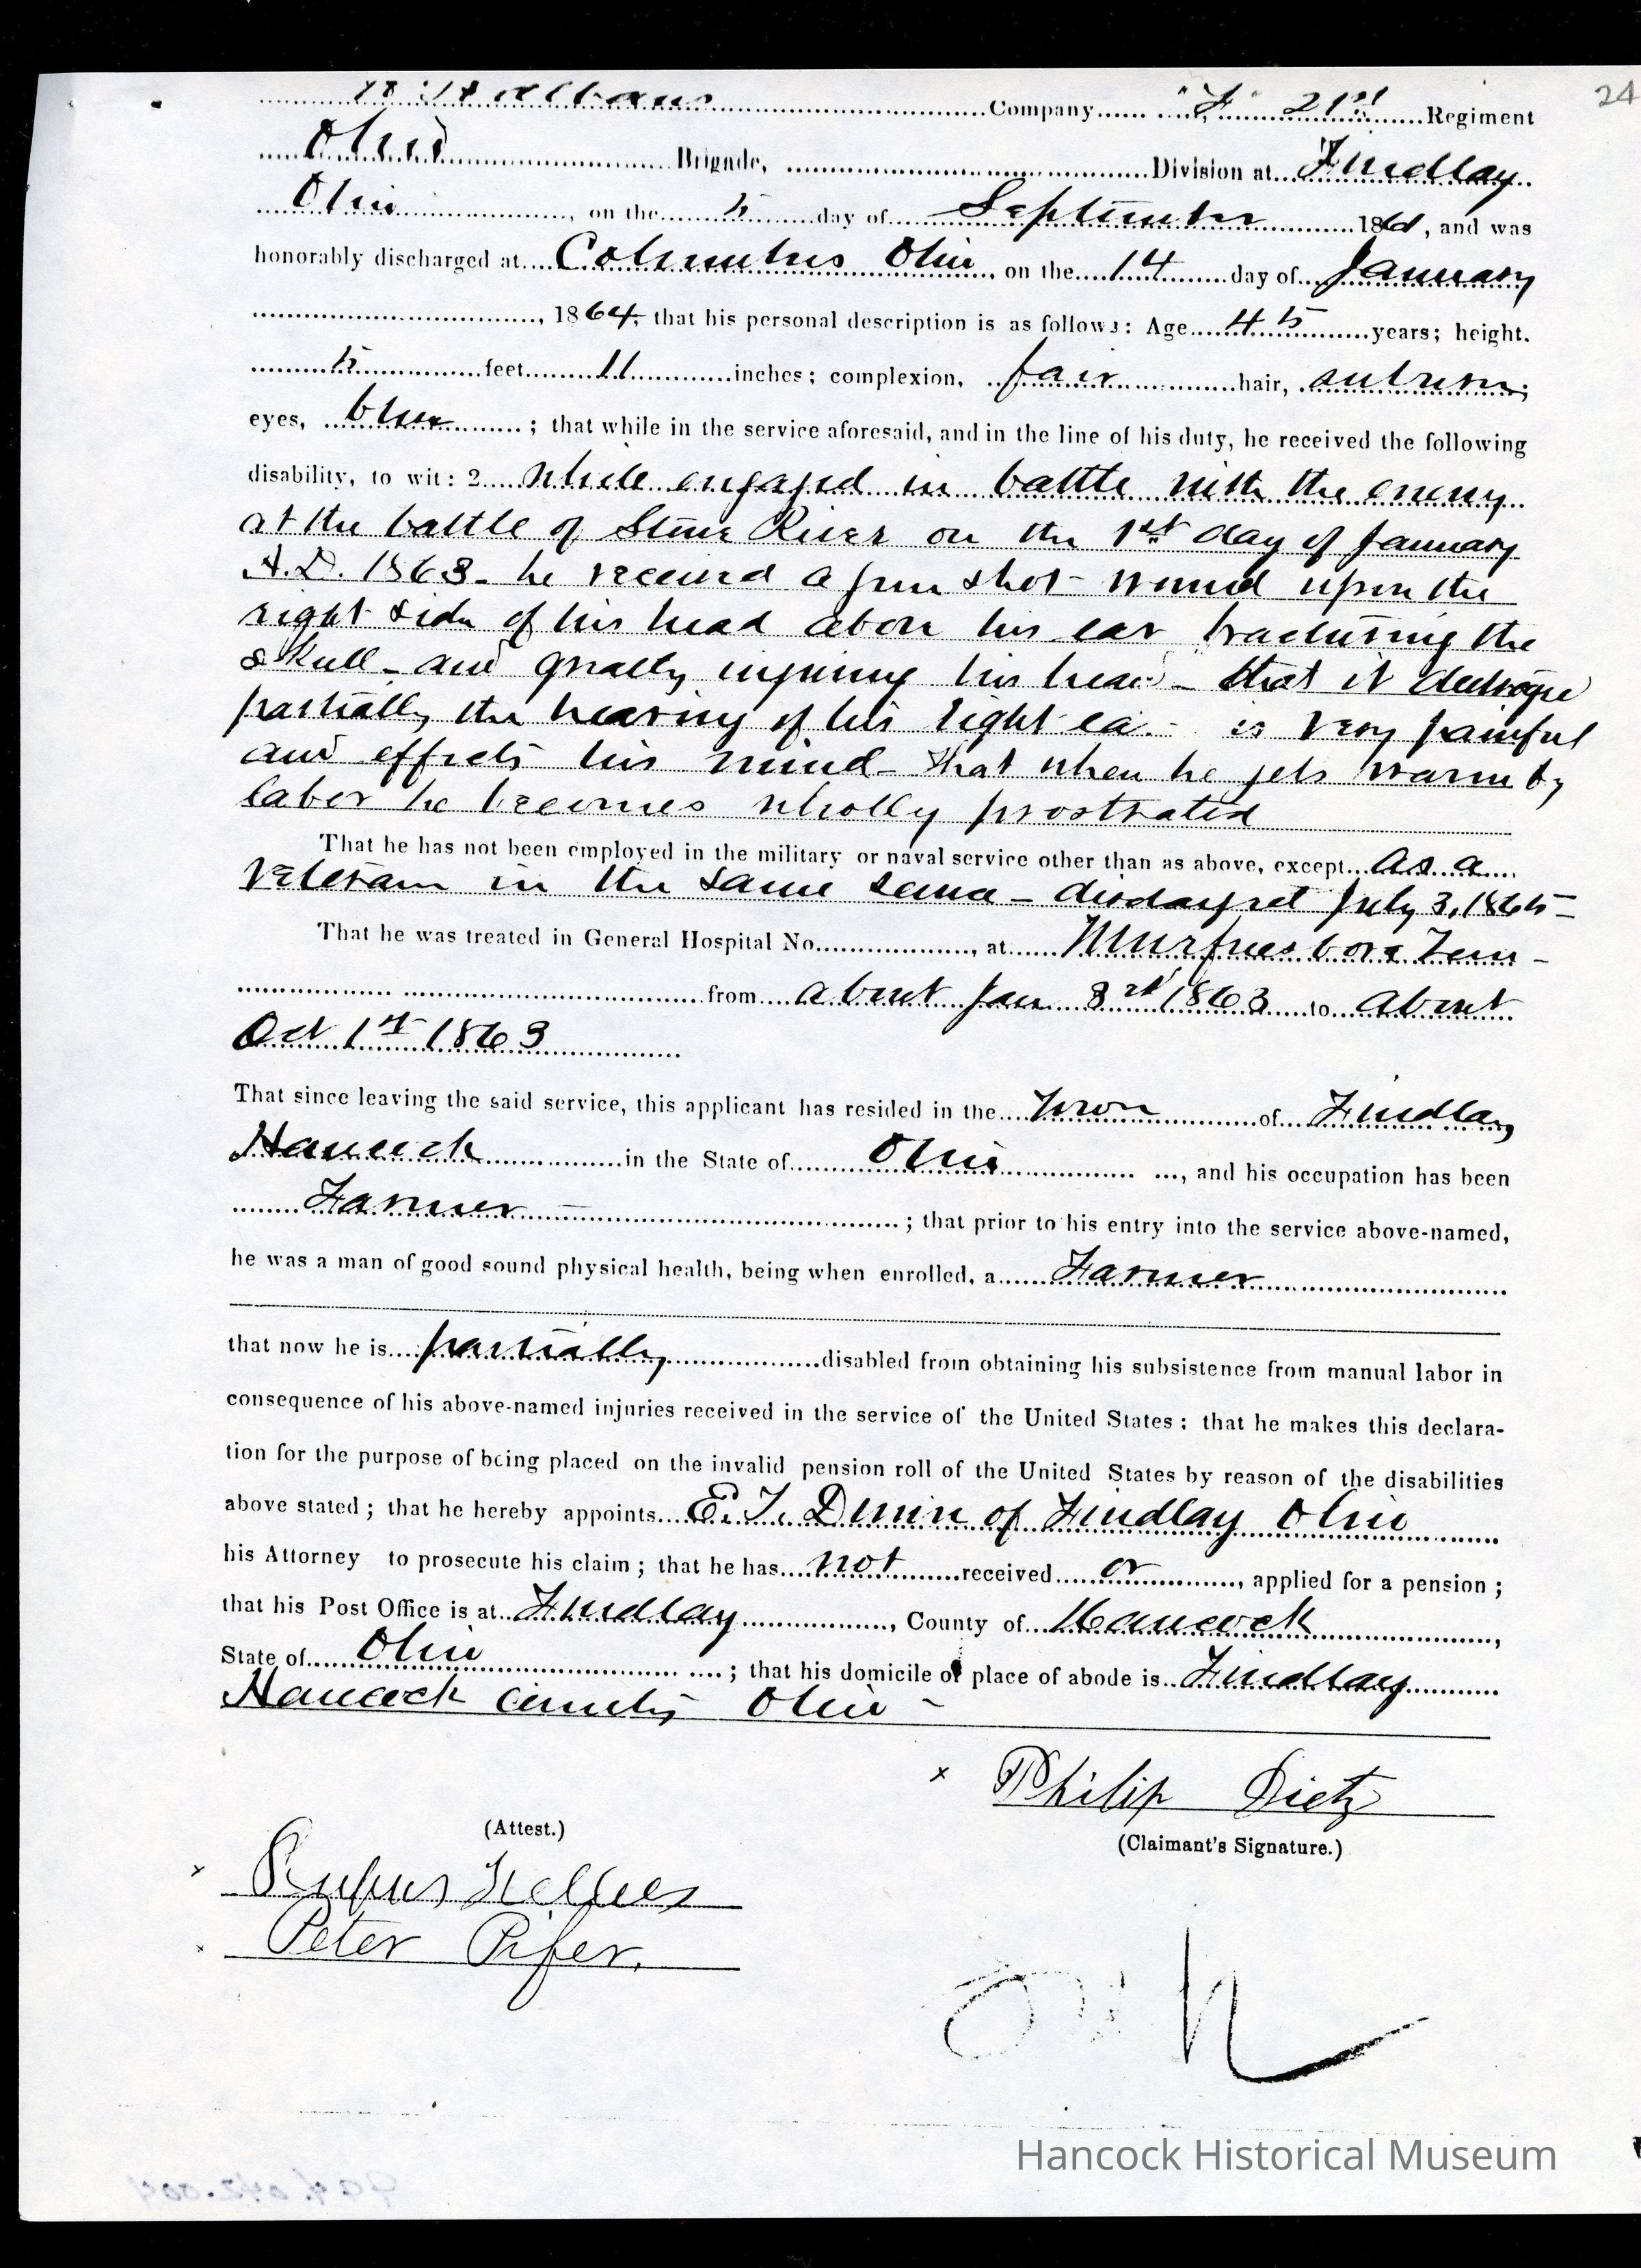 24
Company "F" 21st Regiment
Ohio Brigade, Division at Findlay
Ohio, on the 5 day of September 1861, and was
honorably discharged at Columbus Ohio, on the 14 day of January
, 1864, that his personal description is as follows: Age 45 years; height.
5 feet 11 inches; complexion, fair hair, auburn;
eyes, blue; that while in the service aforesaid, and in the line of his duty, he received the following
disability, to wit: 2 While engaged in battle with the enemy
at the battle of Stone River on the 1st day of January
A.D. 1863- he received a gun shot wound upon the
right side of his head above his ear fracturing the
skull- and greatly injuring his head- that it
partially the hearing of his right ea is very painful
and effects his mind- that when he gets warm by
labor he becomes wholly prostrated
That he has not been employed in the military or naval service other than as above, except as a
Veteran in the same - discharged July 3, 1865-
That he was treated in General Hospital No. , at Murfreesboro Tenn-
from about Jan 3rd 1863 to about
Oct 1st 1863
That since leaving the said service, this applicant has resided in the Town of Findlay
Hancock in the State of Ohio, and his occupation has been
Farmer - ; that prior to his entry into the service above-named,
he was a man of good sound physical health, being when enrolled, a Farmer
that now he is partially disabled from obtaining his subsistence from manual labor in
consequence of his above-named injuries received in the service of the United States; that he makes this declara-
tion for the purpose of being placed on the invalid pension roll of the United States by reason of the disabilities
above stated; that he hereby appoints E. T. Dunn of Findlay Ohio
his Attorney to prosecute his claim; that he has not received or, applied for a pension;
that his Post Office is at Findlay, County of Hancock,
State of Ohio; that his domicile or place of abode is Findlay
Hancock County Ohio-
x Philip Dietz
(Attest.)
(Claimant's Signature.)
x Rufus
x Peter Pifer.
Hancock Historical Museum